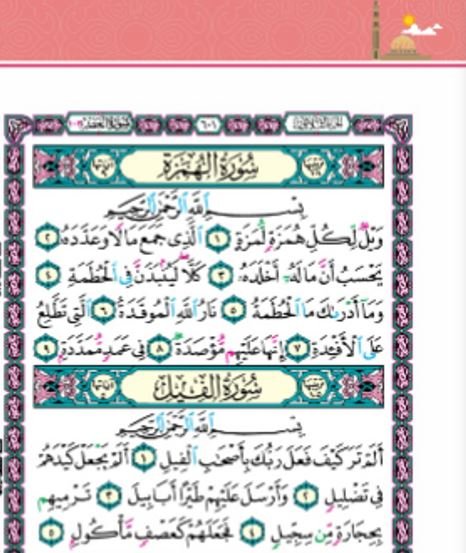 ٦٠١
سُورَةُ الْهُمَزَةِ
بِسْمِ اللَّهِ الرَّحْمَٰنِ الرَّحِيمِ
وَيْلٌ لِّكُلِّ هُمَزَةٍ لُّمَزَةٍ ١ الَّذِى جَمَعَ مَالًا وَعَدَّدَهُ ٢
يَحْسَبُ أَنَّ مَالَهُ أَخْلَدَهُ ٣ كَلَّا لَيُنۢبَذَنَّ فِى الْحُطَمَةِ ٤
وَمَا أَدْرَىٰكَ مَا الْحُطَمَةُ ٥ نَارُ اللَّهِ الْمُوقَدَةُ ٦ الَّتِى تَطَّلِعُ
عَلَى الْأَفْـِٔدَةِ ٧ إِنَّهَا عَلَيْهِم مُّؤْصَدَةٌ ٨ فِى عَمَدٍ مُّمَدَّدَةٍ ٩
سُورَةُ الْفِيلِ
بِسْمِ اللَّهِ الرَّحْمَٰنِ الرَّحِيمِ
أَلَمْ تَرَ كَيْفَ فَعَلَ رَبُّكَ بِأَصْحَٰبِ الْفِيلِ ١ أَلَمْ يَجْعَلْ كَيْدَهُمْ
فِى تَضْلِيلٍ ٢ وَأَرْسَلَ عَلَيْهِمْ طَيْرًا أَبَابِيلَ ٣ تَرْمِيهِم
بِحِجَارَةٍ مِّن سِجِّيلٍ ٤ فَجَعَلَهُمْ كَعَصْفٍ مَّأْكُولٍ ٥